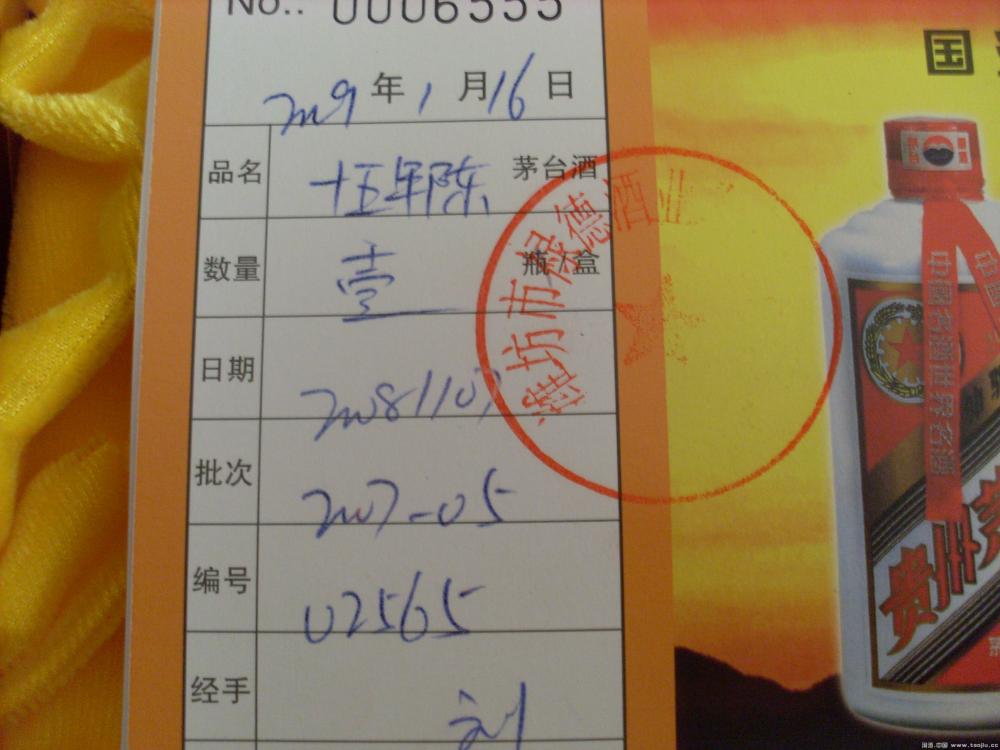 No.: 0006555
2009年1月16日
品名 十五年陈 茅台酒
数量 壹 瓶/盒
日期
批次 2007-05
编号 02565
经手 刘
潍坊市 德酒业
国
中国名酒世界名酒
贵州茅
www.taojiu.cc